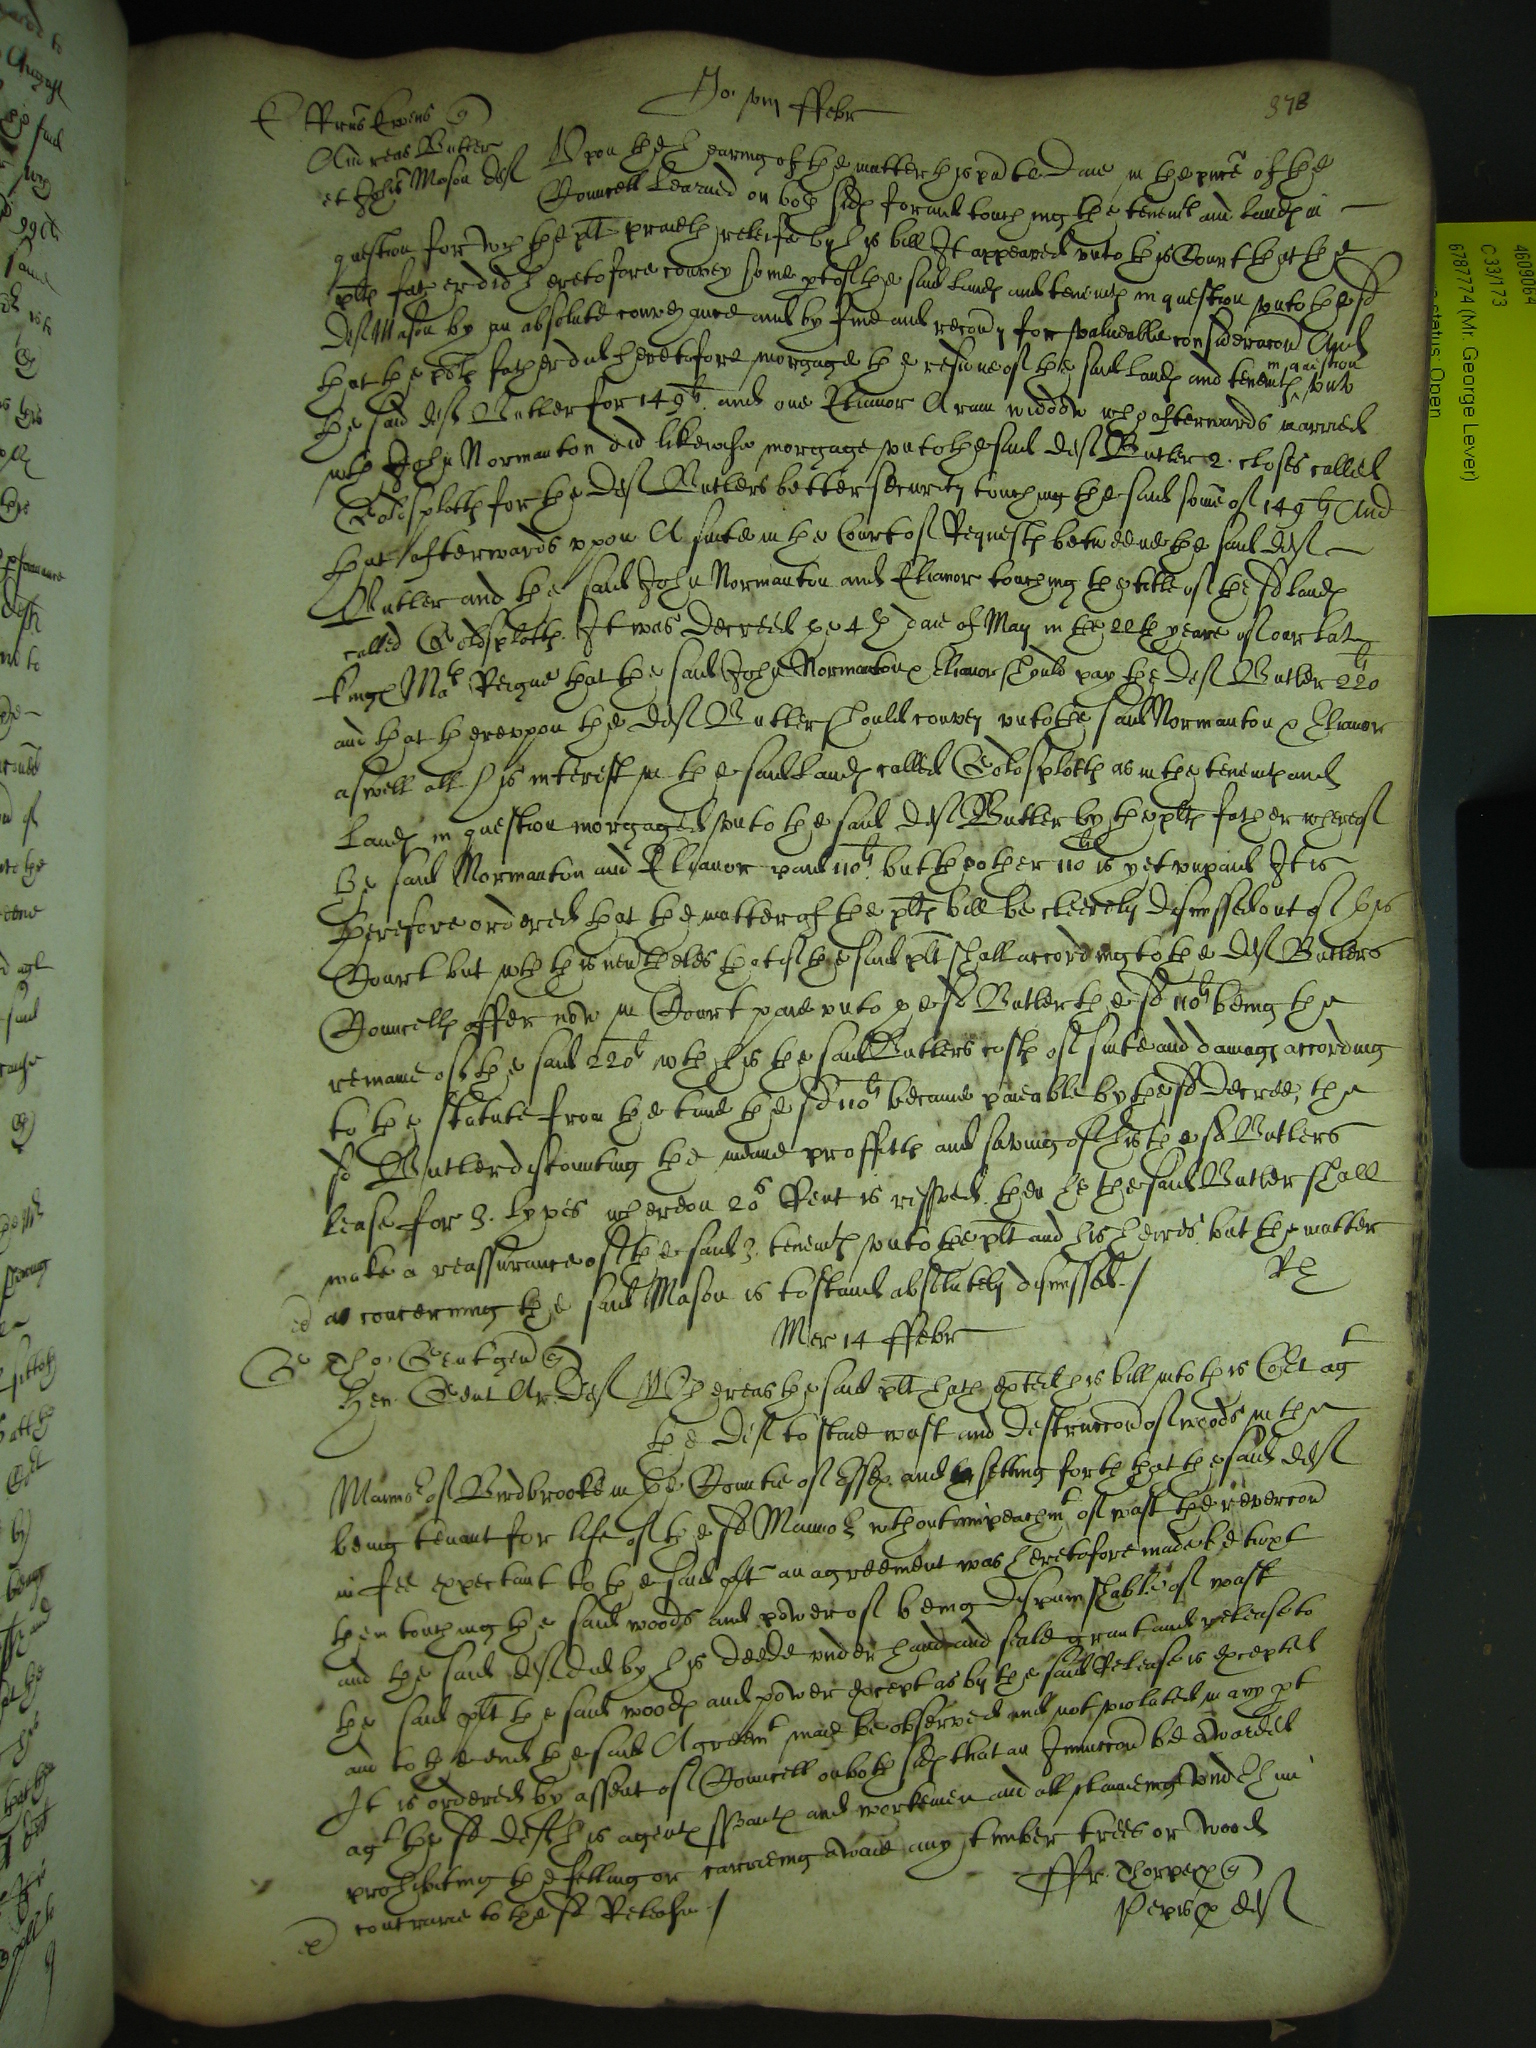 Jo. viij ffebr
378
E ffrns Ewens q
Andreas Butler
et Johes Mason def
Upon the hearing of the matter this p̃nte Daie in the pñce of the
Councell Learned on both sides for and touching the tenemtes and landes in
question for wch the plt praieth releife by his bill It appeared unto this Court that the
pltes father did heretofore convey some pt of the said landes and tenemtes in question unto the sd
def Mason by an absolute conveyance and by fine and recovy for valueable consideracon And
that the pltes father did heretofore morgage the residue of the said landes and tenemtes in question unto
the said def Butler for 149li. and one Elianor widdow who afterwards married
wth John Normanton did likewise morgage unto the said def Butler 2. closes called
for the def Butlers better security touching the said some of 149li And
that afterwards upon A suite in the Court of Requestes betweene the said def
Butler and the said John Normanton and Elianor touching the title of the sd landes
called It was Decreed the 4th daie of May in the yeare of our late
kinges Mates Reigne that the said John Normanton & Elianor should pay the def Butler 220li
and that thereuppon the def Butler should convey unto the said Normanton & Elianor
aswell all his interest in the said landes called as in the tenemtes and
landes in question morgaged unto the said def Butler by the pltes father whereof
the said Normanton and Elianor paid 110li. but the other 110li is yet unpaid It is
therefore ordered that the matter of the pltes bill be cleerely dismissed out of this
Court but wth this nevertheles that if the said plt shall according to the def Butlers
Councells offer now in Court paie unto the sd Butler the sd 110li being the
remaine of the said 220li wth his the said Butlers costes of suite and damages according
to the statute from the time the sd 110li became paieable by the sd decree, the
sd Butler discounting the meane proffittes and saving of his the sd Butlers
lease for 3. lyves whereon 20s Rent is resved. then he the said Butler shall
make a reassurance of the said 3. tenemtes unto the plt and his heires but the matter
as concerning the said Mason is to stand absolutely dismissed./
Rh
Mer 14 ffebr
G Tho. Gent gen q
Hen. Gent Ar. def
Whereas the said plt hath exhted his bill into this Cort agt
the def to staie wast and destruccon of woods in the
Mannor of Birdbrooke in the Countie of Essex and setting forth that the said def
being tenant for life of the sd Mannor wthout impeachmt of wast the revercon
in fee expectant to the said plt an agreement was heretofore made betwixt
them touching the said woods and power of being dispunishable of wast
and the said def did by his deede under hand and seale grant and release to
the said plt the said woodes and power except as by the said Release is excepted
and to the end the said Agreemt maie be observed and not violated in any pt
It is ordered by assent of Councell on both sides that an Iniunccon be awarded
agt the sd def his agentes svantes and workemen and all claimeing under him
prohibiting the felling or carrieing awaie any timber trees or woodes
contrarie to the sd Release./
ffr. Thorpe p q
p def
4609064
C 33/173
6787774 (Mr. George Lever)
status: Open